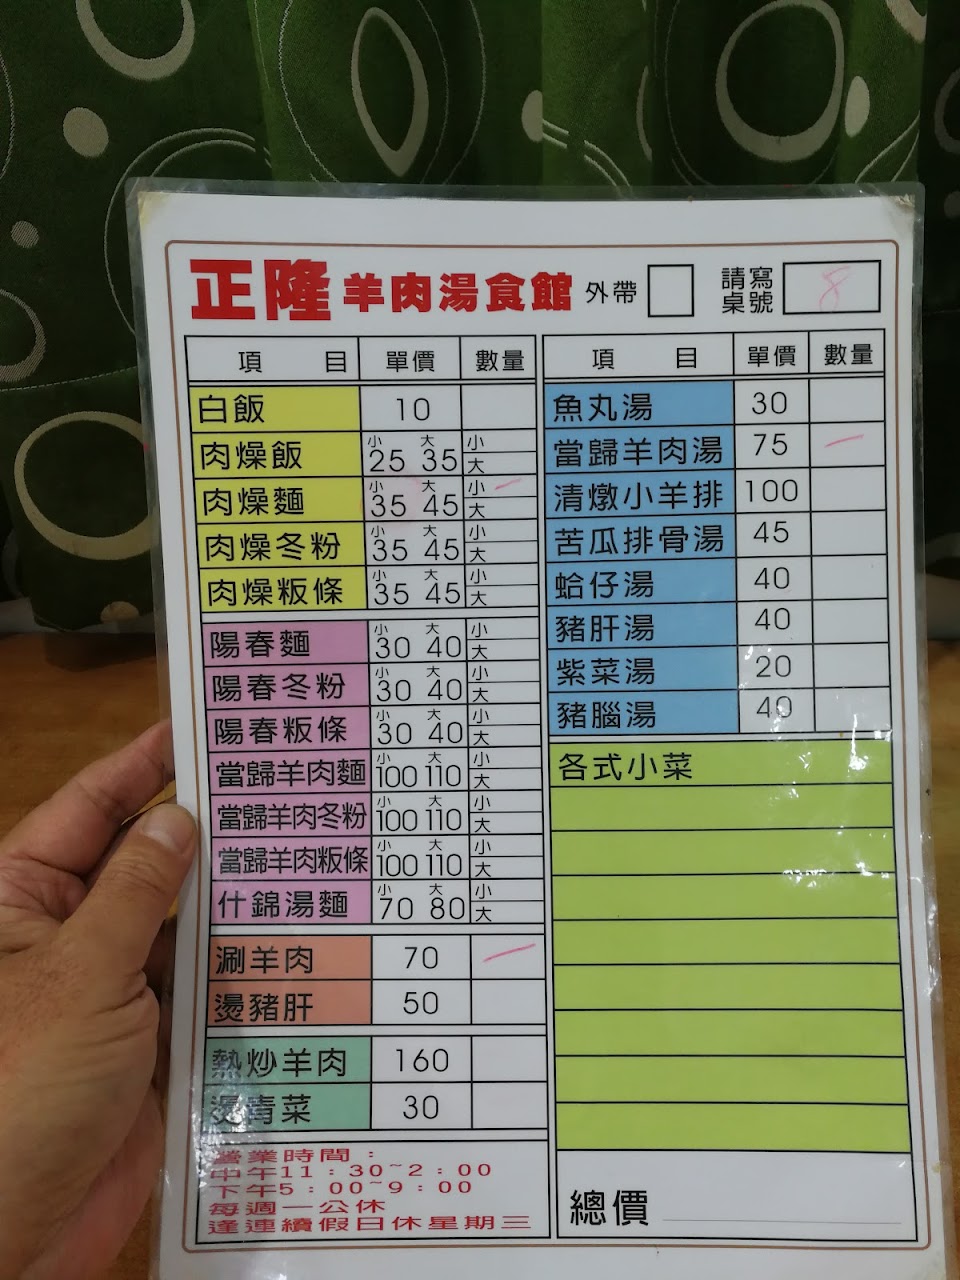 正隆羊肉湯食館 外帶 請寫桌號 8
項目 單價 數量
白飯 10
肉燥飯 小25 大35 小 大
肉燥麵 小35 大45 小 一 大
肉燥冬粉 小35 大45 小 大
肉燥粄條 小35 大45 小 大
陽春麵 小30 大40 小 大
陽春冬粉 小30 大40 小 大
陽春粄條 小30 大40 小 大
當歸羊肉麵 小100 大110 小 大
當歸羊肉冬粉 小100 大110 小 大
當歸羊肉粄條 小100 大110 小 大
什錦湯麵 小70 大80 小 大
涮羊肉 70 一
燙豬肝 50
熱炒羊肉 160
燙青菜 30
營業時間：
中午11：30~2：00
下午5：00~9：00
每週一公休
逢連續假日休星期三
項目 單價 數量
魚丸湯 30
當歸羊肉湯 75 一
清燉小羊排 100
苦瓜排骨湯 45
蛤仔湯 40
豬肝湯 40
紫菜湯 20
豬腦湯 40
各式小菜
總價